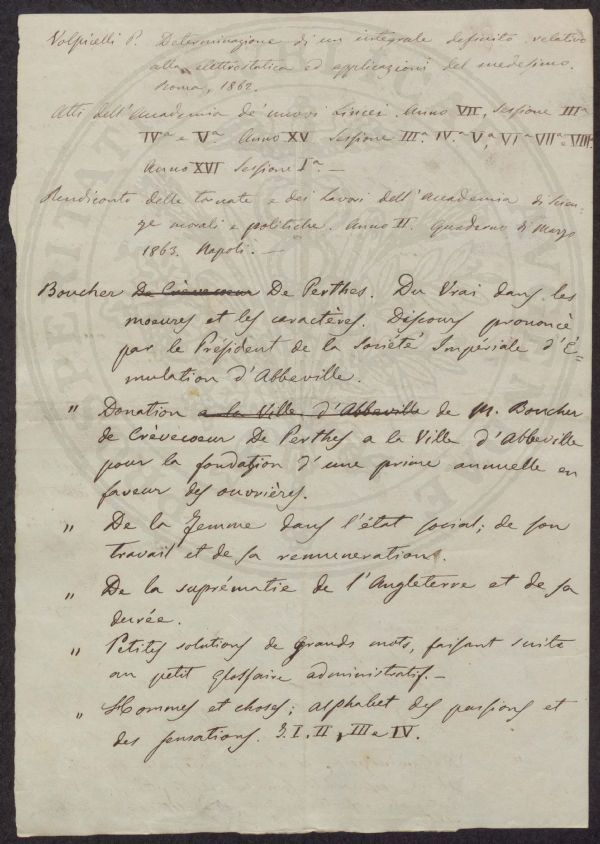 Volpicelli P. Determinazione di un integrale definito relativo
alla elettrostatica ed applicazioni del medesimo.
Roma, 1862.
Atti dell'Accademia de' nuovi Lincei. Anno VII, Sessione IIIª
IVª e Vª. Anno XV Sessione IIIª. IVª. Vª, VIª VIIª e VIIIª
Anno XVI Sessione Iª. —
Rendiconto delle tornate e dei lavori dell'Accademia di Scien-
ze morali e politiche. Anno II. Quaderno di Marzo
1863. Napoli. —
Boucher De Crèvecoeur De Perthes. Du Vrai dans les
moeurs et les caractères. Discours prononcè
par le President de la Société Impériale d'É=
mulation d'Abbeville.
" Donation a la Ville d'Abbeville de M. Boucher
de Crèvecoeur De Perthes a la Ville d'Abbeville
pour la fondation d'une prime annuelle en
faveur des ouvrières.
" De la Femme dans l'état social; de son
travail et de sa remuneration.
" De la suprématie de l'Angleterre et de sa
durée.
" Petites solutions de grands mots, faisant suite
au petit glossaire administratif. —
" Hommes et choses; alphabet des passions et
des sensations. I, II, III e IV.